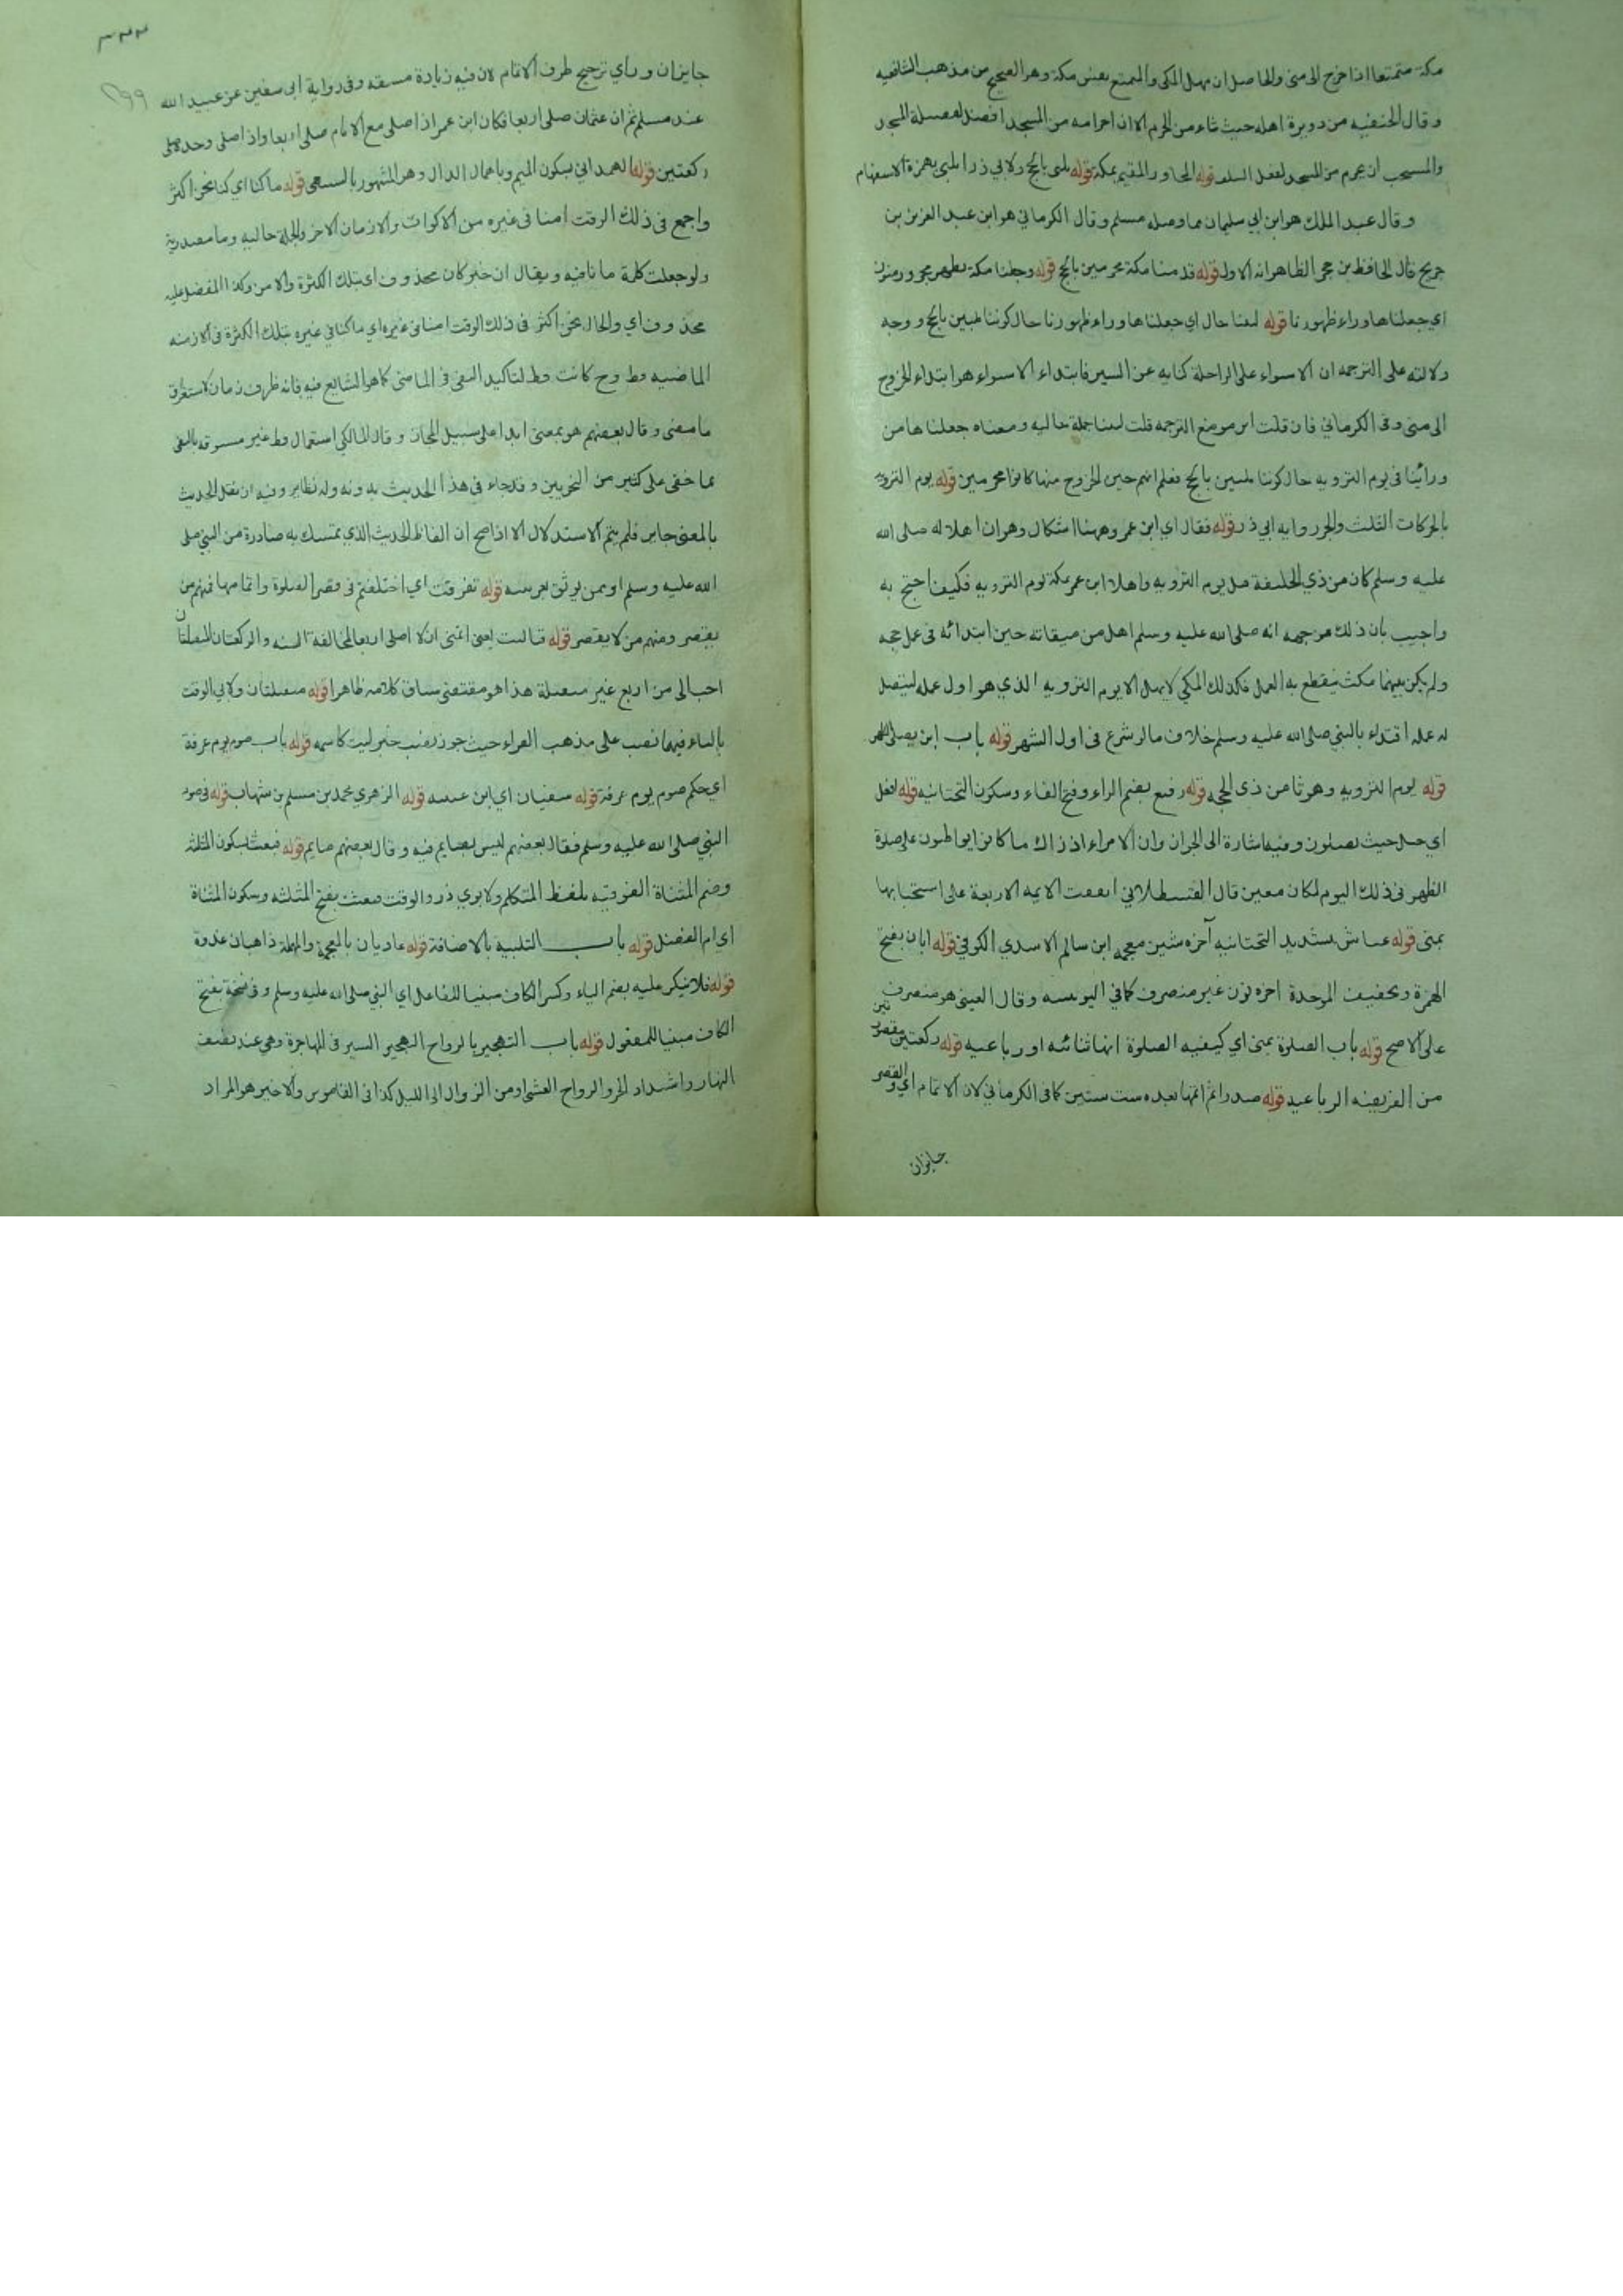 مكة متمتعا اذا خرج الى منى والحاصل ان مهل المكى والمتمتع نفس مكة وهو الصحيح من مذهب الشافعيه
وقال الحنفيه من دويرة اهله حيث شاء من الحرم الا ان احرامه من المسجد افضل لفضيلة المسجد
والمستحب ان يحرم من المسجد لفعل السلف قوله المجاور المقيم بمكة قوله يلبى بالحج ولابي ذر ايلبى بهمزة الاستفهام
وقال عبد الملك هو ابن ابي سليمان مما وصله مسلم وقال الكرماني هو ابن عبد العزيز بن
جريج قال الحافظ بن حجر الظاهر انه الاول قوله قدمنا مكة محرمين بالحج قوله وجعلنا مكة بظهر مجرور منون
اي جعلناها وراء ظهورنا قوله لبينا حال اي جعلناها وراء ظهورنا حال كوننا ملبين بالحج ووجه
دلالته على الترجمه ان الاستواء على الراحلة كنايه عن السير فابتداء الاستواء هو ابتداء الخروج
الى منى وفى الكرماني فان قلت اين موضع الترجمه قلت لبينا جملة حاليه ومعناه جعلناها من
ورائنا فى يوم الترويه حال كوننا ملبين بالحج فعلم انهم حين الخروج منها كانوا محرمين قوله يوم الترويه
بالحركات الثلث والجر روايه ابي ذر قوله فقال اي ابن عمر وههنا اشكال وهو ان اهلاله صلى الله
عليه وسلم كان من ذي الحليفة قبل يوم الترويه واهلال ابن عمر بمكة يوم الترويه فكيف احتج به
واجيب بان ذلك من جهه انه صلى الله عليه وسلم اهل من ميقاته حين ابتدائه فى عمل حجه
ولم يكن بينهما مكث ينقطع به العمل فكذلك المكي لا يهل الا يوم الترويه الذي هو اول عمله ليتصل
له عمله اقتداء بالنبي صلى الله عليه وسلم خلاف ما لو شرع فى اول الشهر قوله باب اين يصلى الظهر
قوله يوم الترويه وهو ثامن ذى الحجه قوله رفيع بضم الراء وفتح الفاء وسكون التحتانيه قوله افعل
اي صل حيث يصلون وفيه اشارة الى الجواز وان الامراء اذ ذاك ما كانوا يواظبون على صلوة
الظهر فى ذلك اليوم بمكان معين قال القسطلاني اتفقت الايمه الاربعة على استحبابها
بمنى قوله عياش بتشديد التحتانيه آخره شين معجمه ابن سالم الاسدي الكوفي قوله ابان بفتح
الهمزة وتخفيف الموحدة اخره نون غير منصرف كما في اليونينيه وقال العينى هو منصرف
على الاصح قوله باب الصلوة بمنى اي كيفيه الصلوة انها ثنائيه او رباعيه قوله ركعتين مقصورتين
من الفريضه الرباعيه قوله صدرا ثم اتمها بعده ست سنين كما فى الكرماني لان الاتمام اي والقصر
جايزان
٣٢٢
٢٩٩
جايزان وراي ترجيح طرف الاتمام لان فيه زيادة مشقه وفى رواية ابى سفين عن عبيد الله
عند مسلم ثم ان عثمان صلى اربعا فكان ابن عمر اذا صلى مع الامام صلى اربعا واذا صلى وحده صلى
ركعتين قوله الهمداني بسكون الميم وباهمال الدال وهو المشهور بالسبيعى قوله ما كنا اي كنا نحن اكثر
واجمع فى ذلك الوقت امنا فى غيره من الاكوان والازمان الاخر والجملة حاليه وما مصدرية
ولو جعلت كلمة ما نافيه ويقال ان خبر كان محذوف اي بتلك الكثرة والامن وكذا المفضل عليه
محذوف اي والحال نحن اكثر فى ذلك الوقت امنا فى غيره اي ما كنا في غيره بتلك الكثرة فى الازمنه
الماضيه وقط وح كانت قط لتاكيد النفى فى الماضى كما هو الشايع فيه فانه ظرف زمان لاستغراق
ما مضى وقال بعضهم هو بمعنى ابدا على سبيل المجاز وقال المالكي استعمال قط غير مسبوقه بالنفى
مما خفى على كثير من النحويين وقد جاء فى هذا الحديث بدونه وله نظاير وفيه ان نقل الحديث
بالمعنى جايز فلم يتم الاستدلال الا اذا صح ان الفاظ الحديث الذي يتمسك به صادرة من النبي صلى
الله عليه وسلم او ممن يوثق بعربيته قوله تفرقت اي اختلفتم فى قصر الصلوة واتمامها فمنهم من
يقصر ومنهم من لا يقصر قوله فياليت يعنى اتمنى ان لا اصلى اربعا لمخالفه السنه والركعتان المتقبلتان
احب الى من اربع غير متقبلة هذا هو مقتضى سياق كلامه ظاهرا قوله متقبلتان ولابي الوقت
بالياء فيهما نصب على مذهب الفراء حيث جوز نصب خبر ليت كاسمه قوله باب صوم يوم عرفة
اي حكم صوم يوم عرفة قوله سفيان اي ابن عيينه قوله الزهري محمد بن مسلم بن شهاب قوله فى صوم
النبي صلى الله عليه وسلم فقال بعضهم ليس بصايم فيه وقال بعضهم صايم قوله فبعثت بسكون المثلثه
وضم المثناة الفوقيه بلفظ المتكلم ولابوي ذر والوقت فبعثت بفتح المثلثه وسكون المثناة
اي ام الفضل قوله باب التلبية بالاضافة قوله غاديان بالمعجمة والمهملة ذاهبان غدوة
قوله فلا ينكر عليه بضم الياء وكسر الكاف مبنيا للفاعل اي النبي صلى الله عليه وسلم وفى نسخة بفتح
الكاف مبنيا للمفعول قوله باب التهجير بالرواح التهجير السير فى الهاجرة وهى عند نصف
النهار واشتداد الحر والرواح العشى او من الزوال الى الليل كذا فى القاموس والاخير هو المراد